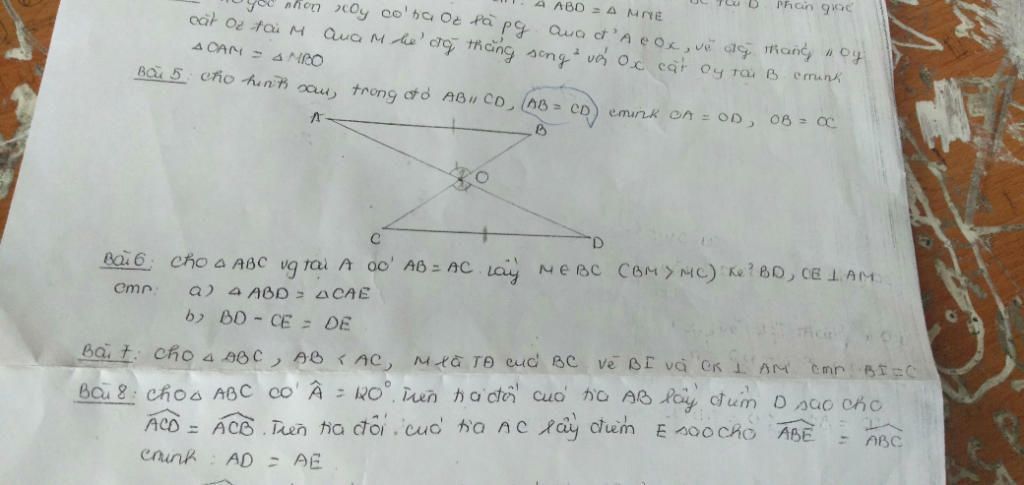 Δ ABD = Δ MNE
góc nhọn xOy có tia Oz là pg. Qua đ' A ∈ Ox, vẽ đg thẳng // Oy
cắt Oz tại M Qua M kẻ đg thẳng song² với Ox cắt Oy tại B. cmink
Δ OAM = Δ MBO
Bài 5: cho hình sau, trong đó AB // CD, AB = CD cmink OA = OD, OB = OC
A
B
O
C
D
Bài 6: Cho Δ ABC vg tại A có AB = AC. Lấy M ∈ BC (BM > MC) Kẻ BD, CE ⊥ AM
cmr: a) Δ ABD = Δ CAE
b) BD - CE = DE
Bài 7: Cho Δ ABC, AB < AC, M là TĐ của BC vẽ BI và CK ⊥ AM cmr: BI = C
Bài 8: Cho Δ ABC có Â = 120°. Trên tia đối của tia AB lấy điểm D sao cho
ACD = ACB. Trên tia đối của tia AC lấy điểm E sao cho ABE = ABC
cmink: AD = AE